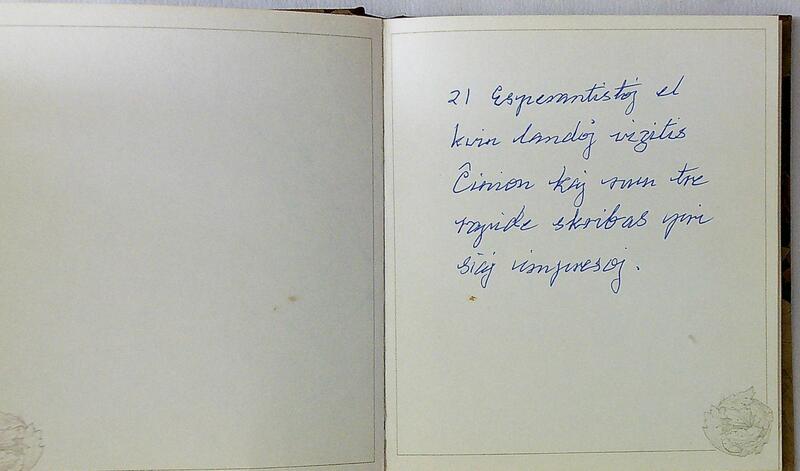 21 Esperantistoj el
kvin landoj vizitis
Ĉinion kaj nun tre
rapide skribas pri
siaj impresoj.